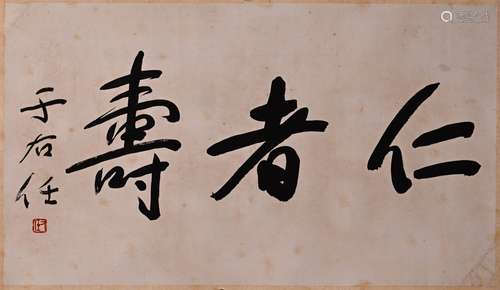 仁者壽
于右任